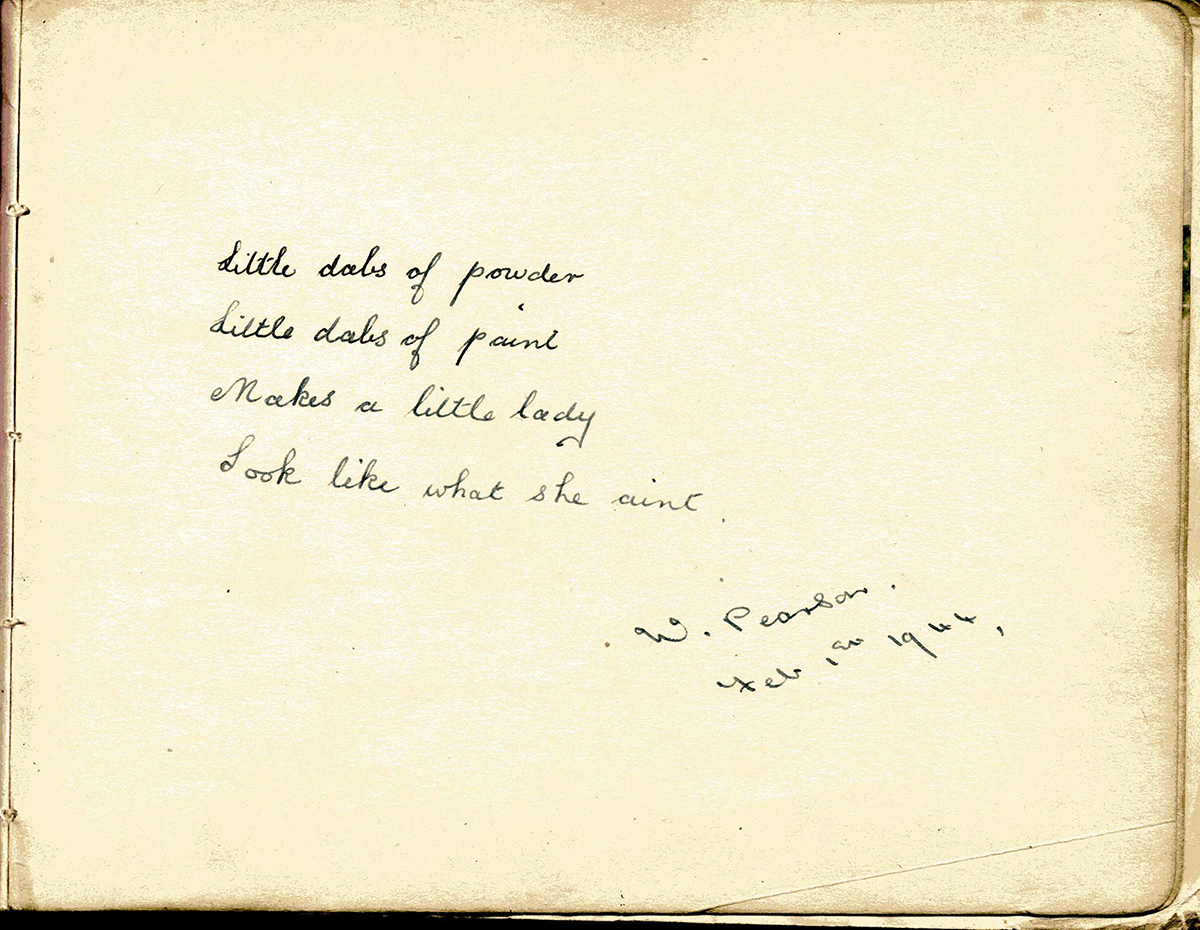 Little dabs of powder
Little dabs of paint
Makes a little lady
Look like what she aint.
W. Pearson.
Feb 1st 1944,